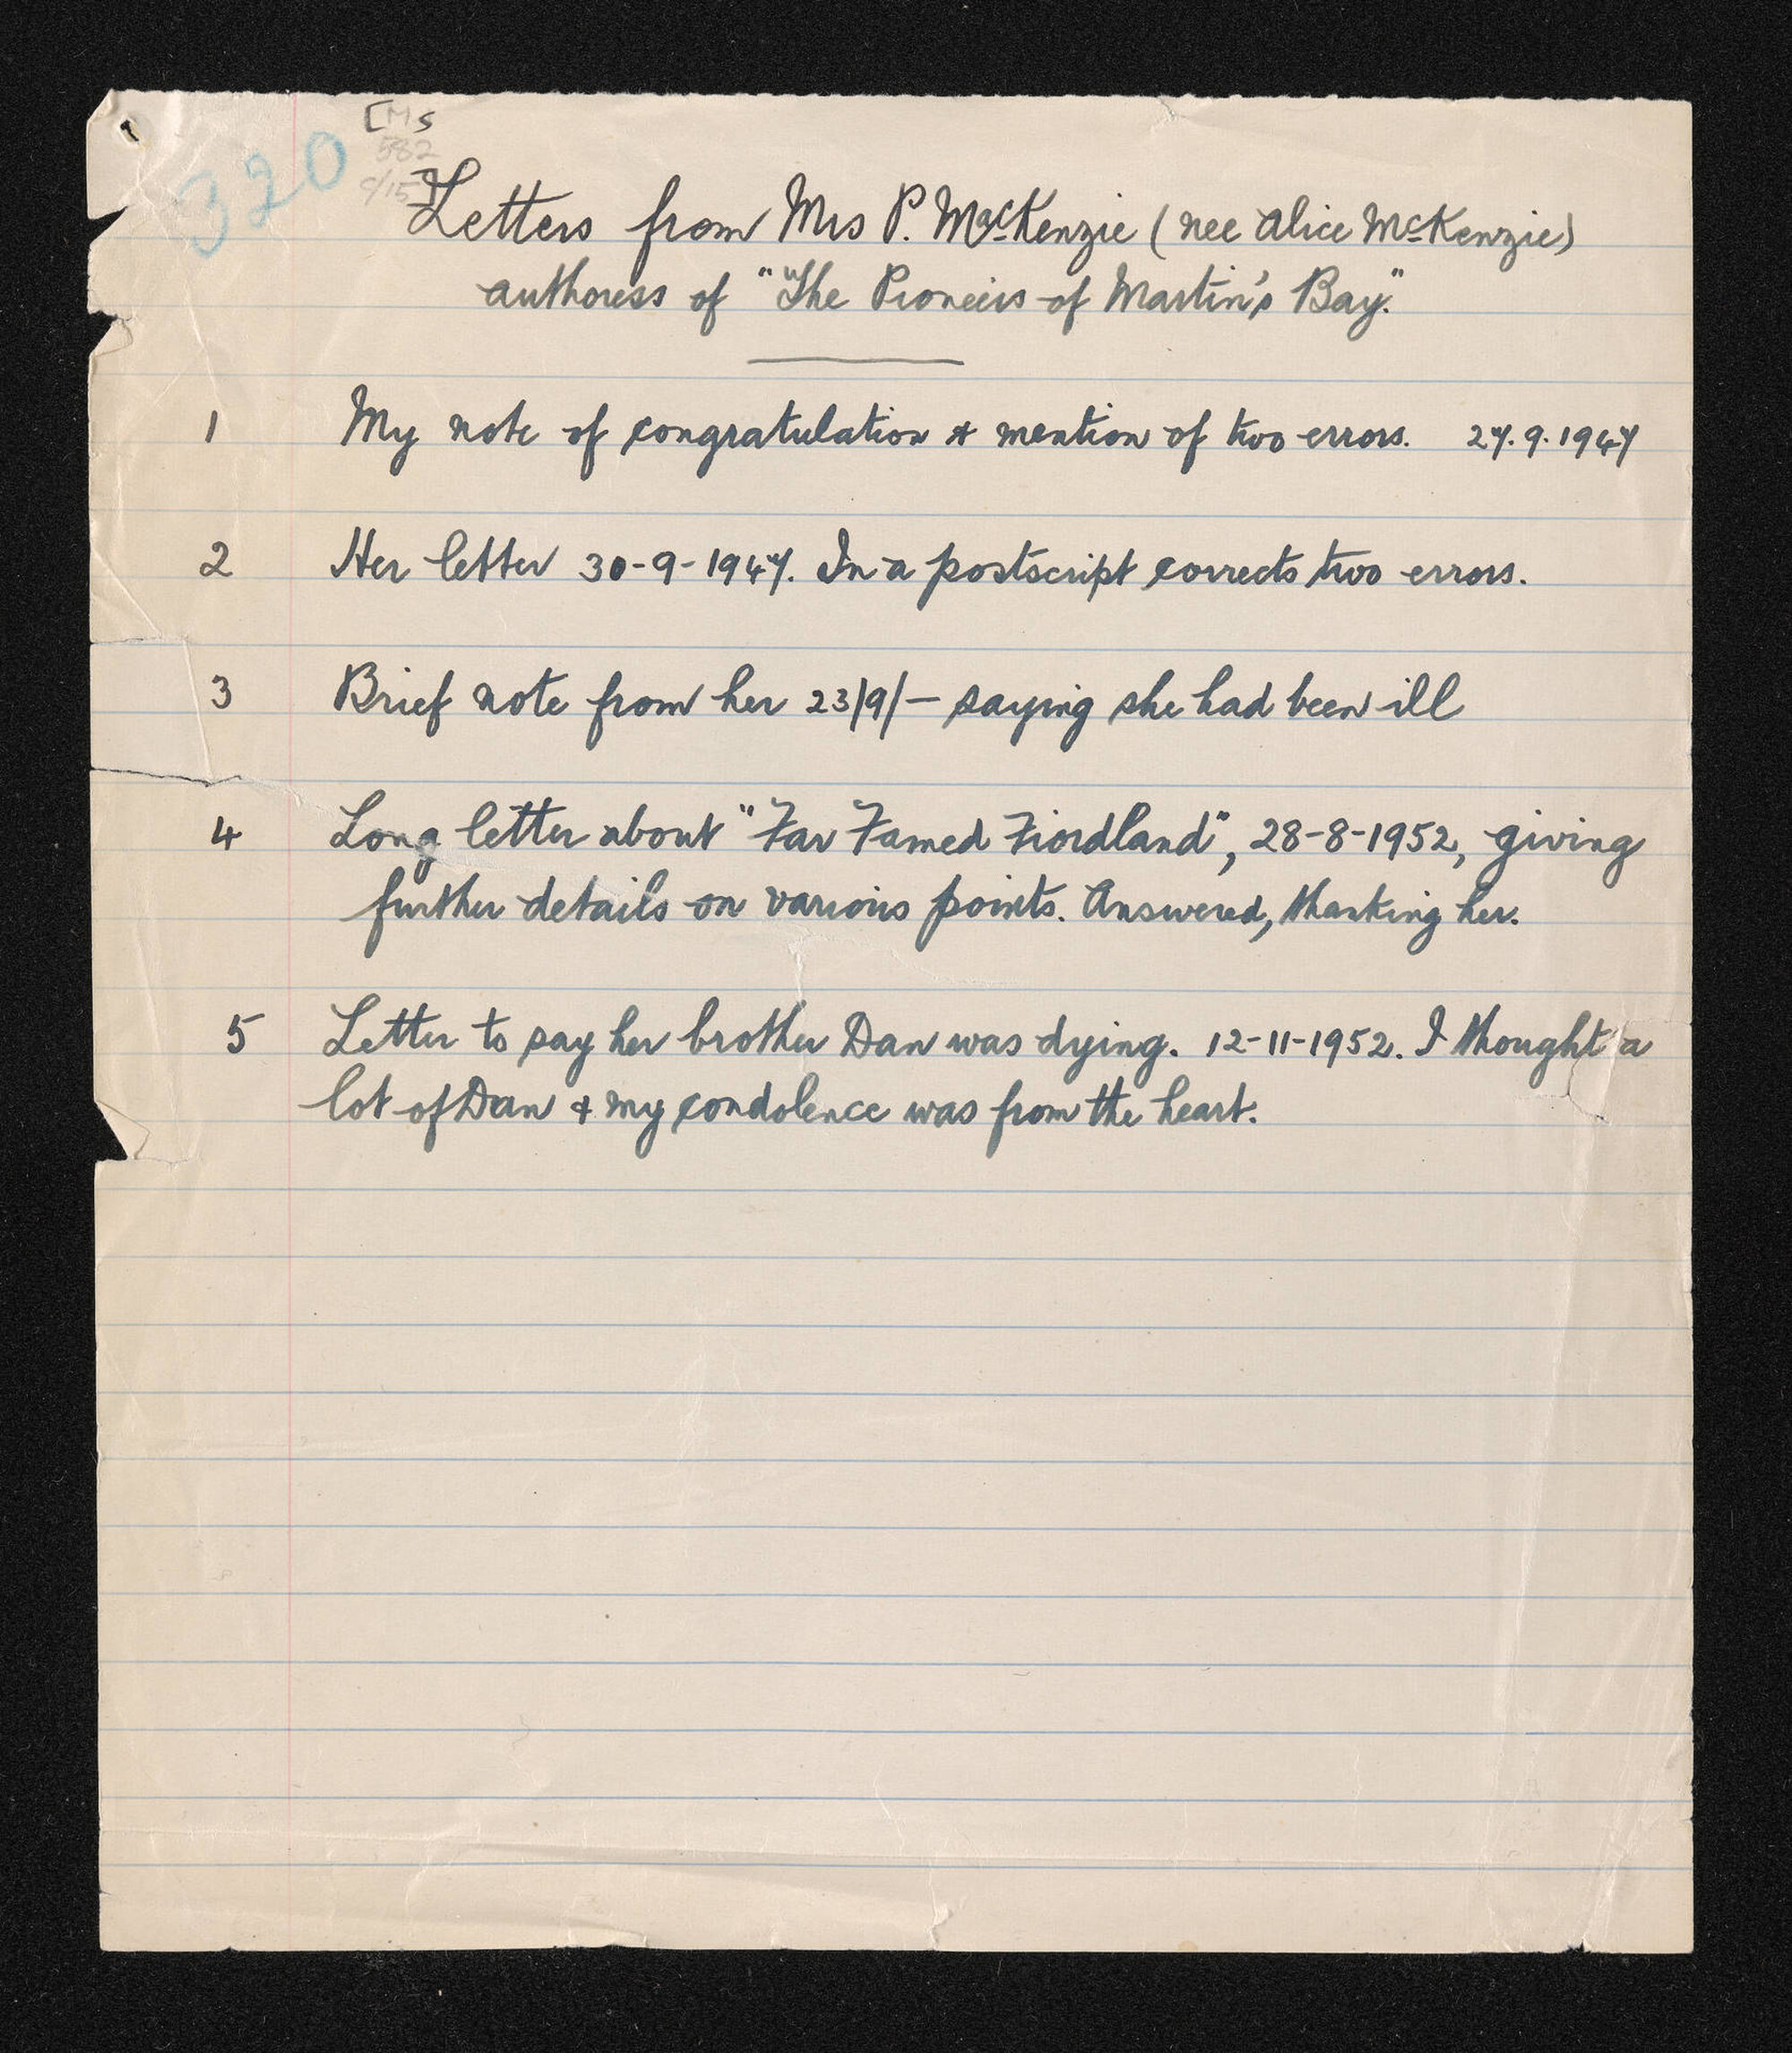 320
[MS
582
C/15]
Letters from Mrs P. MacKenzie (nee Alice McKenzie)
authoress of "The Pioneers of Martin's Bay."
1 My note of congratulation & mention of two errors. 27.9.1947
2 Her letter 30-9-1947. In a postscript corrects two errors.
3 Brief note from her 23/9/— saying she had been ill
4 Long letter about "Far Famed Fiordland", 28-8-1952, giving
further details on various points. Answered, thanking her.
5 Letter to say her brother Dan was dying. 12-11-1952. I thought a
lot of Dan & my condolence was from the heart.